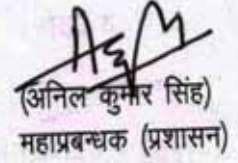 (अनिल कुमार सिंह)
महाप्रबन्धक (प्रशासन)